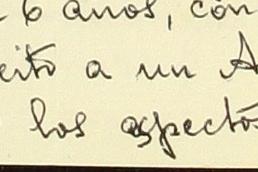 6 anos, con
eito a un A
los aspectos